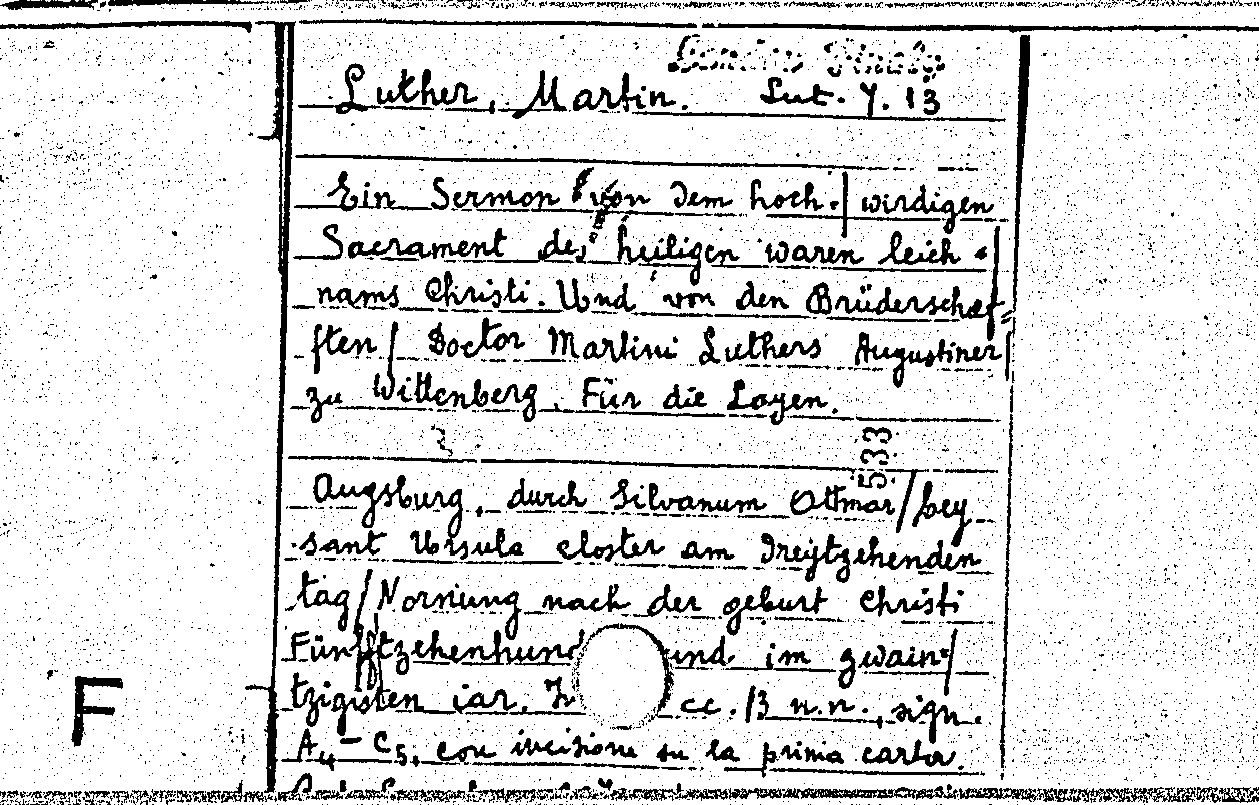 Luther, Martin. Lut. 7. 13
Ein Sermon von dem hoch-| wirdigen
Sacrament des heiligen waren leich-|
nams Christi. Und von den Brüderschaf=
ften / Doctor Martini Luthers Augustiner |
zu Wittenberg. Für die Layen.
533
Augsburg, durch Silvanum Ottmar / bey
sant Ursula closter am dreytzehenden
tag / Nornung nach der geburt Christi
Fünfftzehenhund und im zwain=|
tzigisten iar. cc. 13 n.n., sign.
A4 - C5, con incisione su la prima carta.
F